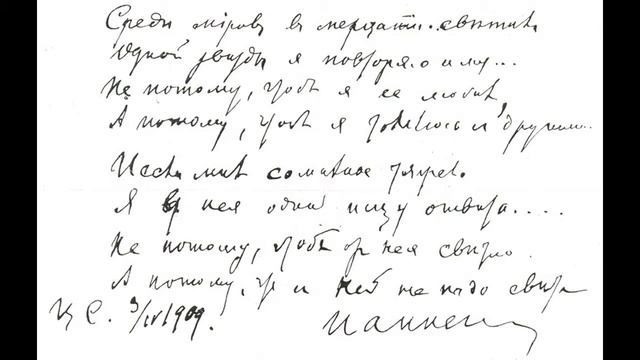 Среди міровъ, въ мерцаніи свѣтилъ
Одной звѣзды я повторяю имя...
Не потому, чтобъ я ее любилъ,
А потому, что я томлюсь съ другими.
И если мнѣ сомнѣнье тяжело,
Я у нея одной ищу отвѣта....
Не потому, чтобъ отъ нея свѣтло
А потому, что съ ней не надо свѣта
Ц. С. 3/IV 1909.